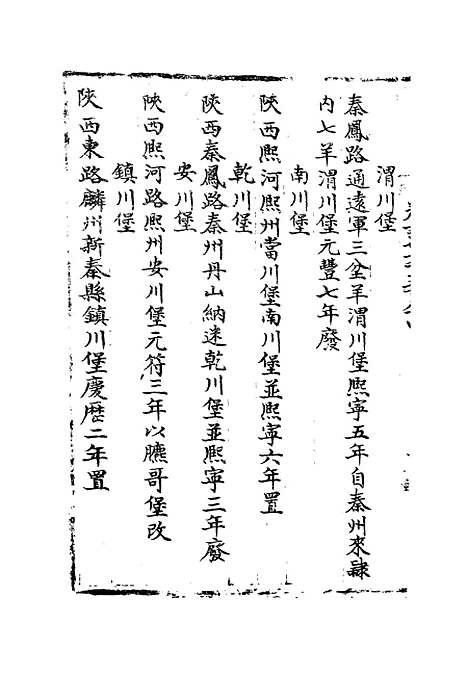 渭川堡
秦鳳路通遠軍三岔羊渭川堡熙寧五年自秦州來隷
內七羊渭川堡元豐七年廢
南川堡
陝西熙河熙州當川堡南川堡並熙寧六年置
乾川堡
陝西秦鳳路秦州丹山納迷乾川堡並熙寧三年廢
安川堡
陝西熙河路熙州安川堡元符三年以臕哥堡改
鎮川堡
陝西東路麟州新秦縣鎮川堡慶曆二年置